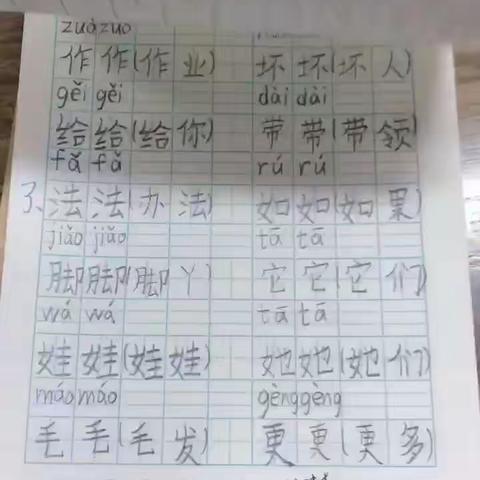 zuòzuo
作 作(作 业) 坏 坏(坏 人)
gěi gěi dài dài
给 给(给 你) 带 带(带 领)
fǎ fǎ rú rú
3、法 法(办 法) 如 如(如 果)
jiǎo jiǎo tā tā
脚 脚(脚 丫) 它 它(它 们)
wá wá tā tā
娃 娃(娃 娃) 她 她(她 们)
máo máo gènggèng
毛 毛(毛 发) 更 更(更 多)